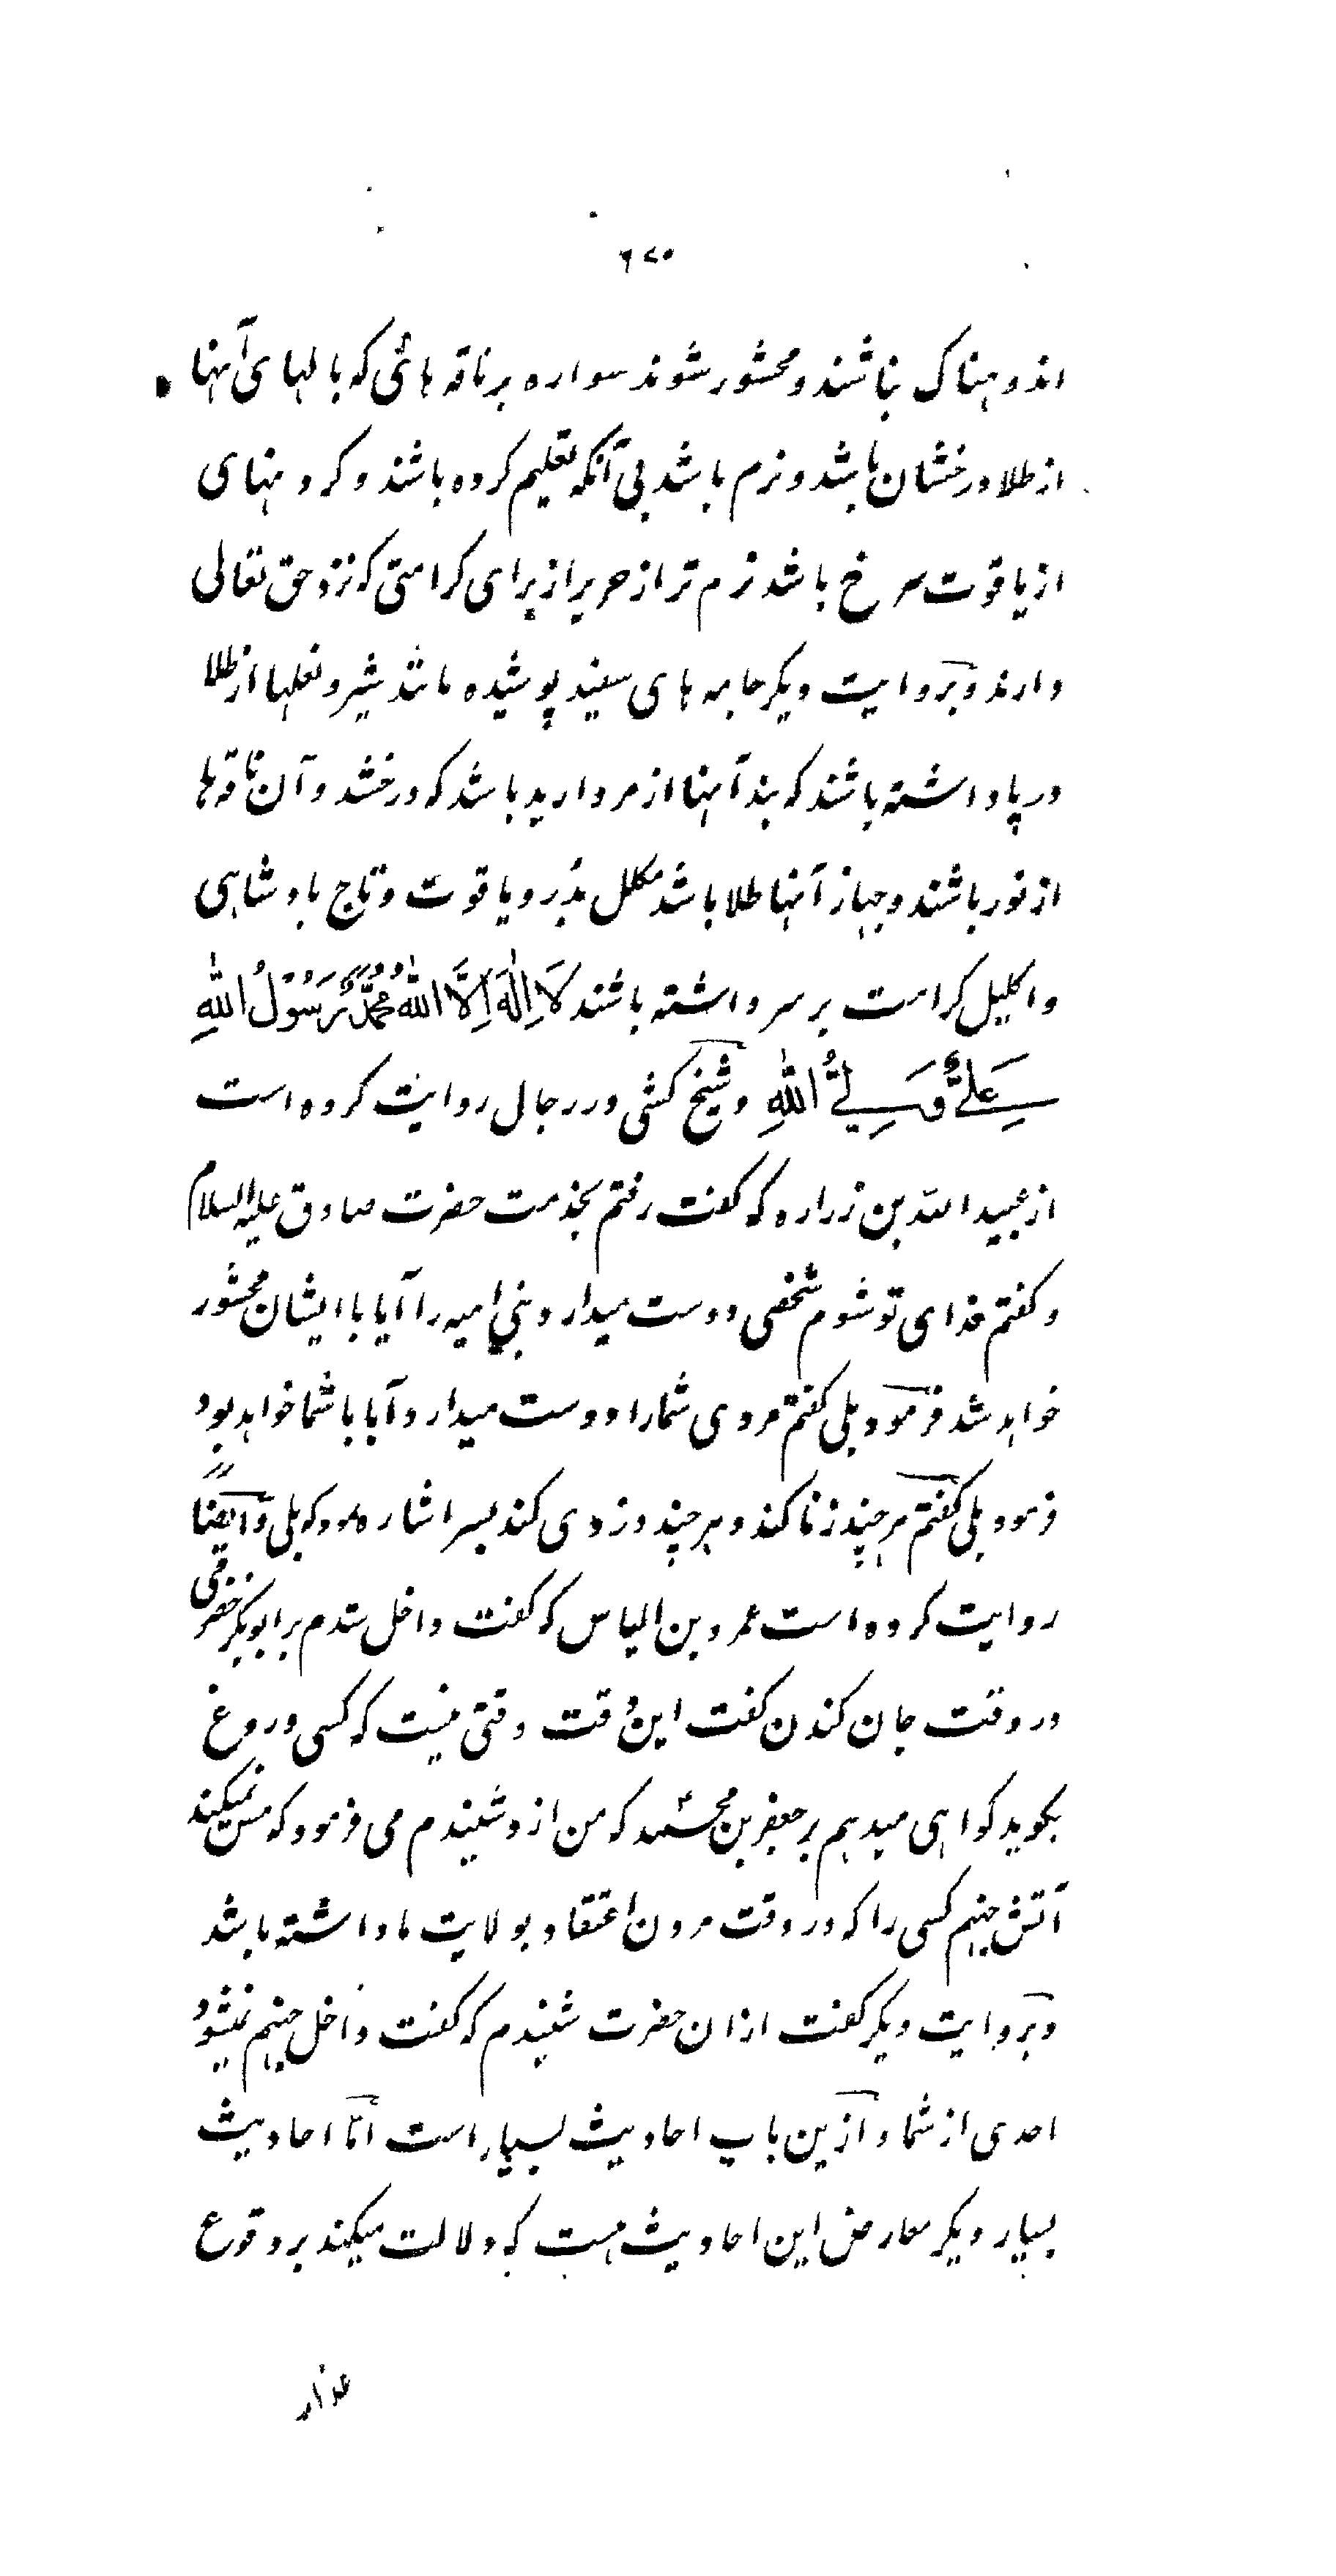 ٦٧٠
اندوهناک نباشند و محشور شوند سواره بر ناقه هائی که بالهای آنها
از طلا درخشان باشد و نرم باشد بی آنکه تعلیم کرده باشند و گردنهای
از یاقوت سرخ باشد نرم تر از حریر از برای کرامتی که نزد حق تعالی
دارند و بروایت دیگر جامه های سفید پوشیده مانند شیر و نعلها از طلا
در پا داشته باشند که بند آنها از مروارید باشد که درخشد و آن ناقه ها
از نور باشند و جهاز آنها طلا باشد مکلل بدر و یاقوت و تاج بادشاهی
و اکلیل کرامت بر سر داشته باشند لَا اِلٰهَ اِلَّا اللّٰهُ مُحَمَّدٌ رَسُوْلُ اللّٰهِ
عَلِیٌّ وَلِیُّ اللّٰهِ و شیخ کشی در رجال روایت کرده است
از عبید الله بن زراره که گفت رفتم بخدمت حضرت صادق علیه السلام
و گفتم فدای تو شوم شخصی دوست میدارد بنی امیه را آیا با ایشان محشور
خواهد شد فرمود بلی گفتم مردی شما را دوست میدارد آیا با شما خواهد بود
فرمود بلی گفتم هر چند زنا کند و هر چند دزدی کند بسر اشاره نمود که بلی و ایضاً
روایت کرده است عمرو بن الیاس که گفت داخل شدم بر ابوبکر حضرمی
در وقت جان کندن گفت این وقت وقتی نیست که کسی دروغ
بگوید گواهی میدهم بر جعفر بن محمد که من از و شنیدم می فرمود که مس نمیکند
آتش جهنم کسی را که در وقت مردن اعتقاد بولایت ما داشته باشد
و بروایت دیگر گفت ازان حضرت شنیدم که گفت داخل جهنم نمیشود
احدی از شما و ازین باب احادیث بسیار است امّا احادیث
بسیار دیگر معارض این احادیث هست که دلالت میکند بر وقوع